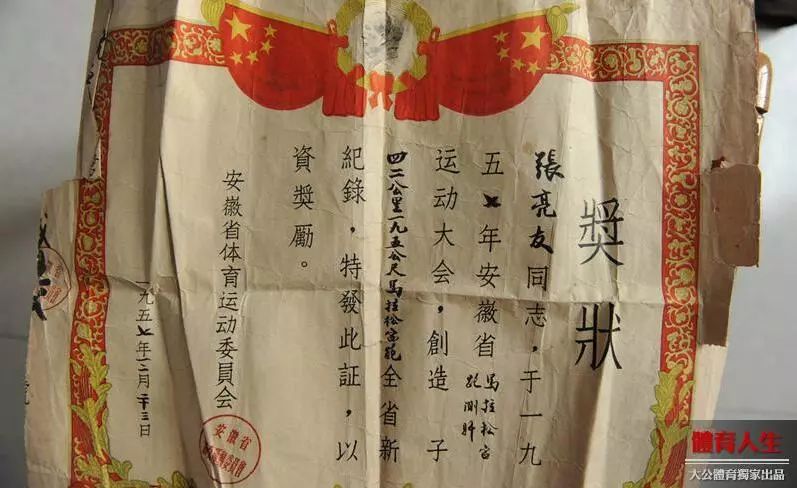 獎狀
張亮友同志,于一九
五七年安徽省馬拉松宮跑測驗
运动大会,創造 子
四二公里一九五公尺馬拉松宮跑全省新
紀錄,特發此証,以
資獎勵。
安徽省体育运动委員会
一九五七年十二月二十三日
安徽省
體育人生
大公體育獨家出品